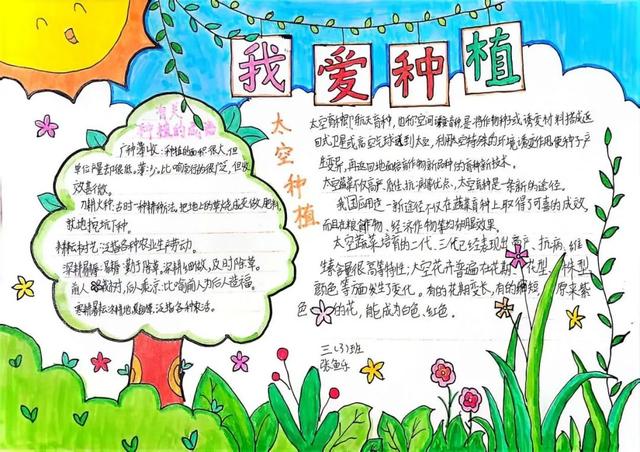 我爱种植
有关
种植的成语
广种薄收：种植的面积很大，但
单位产量却很低。薄：少。比喻实行的很广泛，但收
效甚微。
刀耕火种：古时一种耕种方法，把地上的草烧成灰做肥料，
就地挖坑下种。
耕耘树艺：泛指各种农业生产劳动。
深耕易耨：易耨：勤于除草。深耕细做，及时除草。
前人种树，后人乘凉：比喻前人为后人造福。
太空种植
太空育种即航天育种，也称空间诱变育种，是将作物种子或诱变材料搭乘返
回式卫星或高空气球送到太空，利用太空特殊的环境诱变作用，使种子产
生变异，再返回地面培育作物新品种的育种新技术。
我国启用这一新途径不仅在蔬菜育种上取得了可喜的成效，
而且在粮食作物、经济作物等均有明显效果。
太空蔬菜培育的二代、三代已经表现出高产、抗病、维
生素含量很高等特性；太空花卉普遍在花期、花型、株型、
颜色等方面发生了变化。有的花期变长，有的
原来紫
色的花，能成为白色、红色。
三（3）班